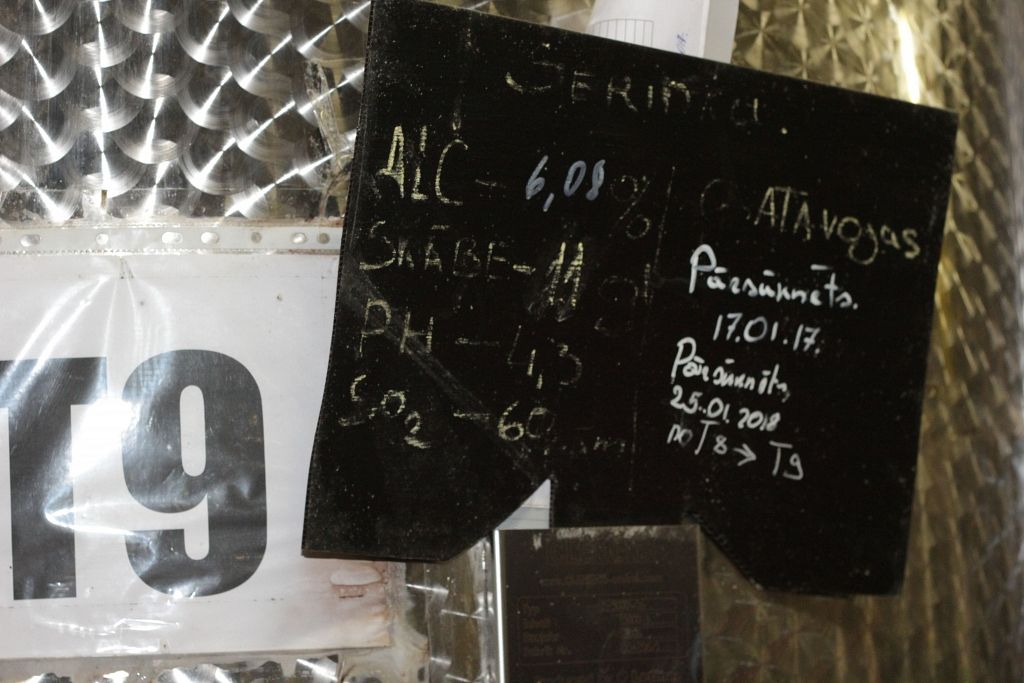 ALC - 6,08 %
SKĀBE - 11
PH - 4,3
SO2 - 60
ATAVOJAS
Pārsūknēts.
17.01.17.
Pārsūknēts,
25.01.2018
no T8 → T9
T9